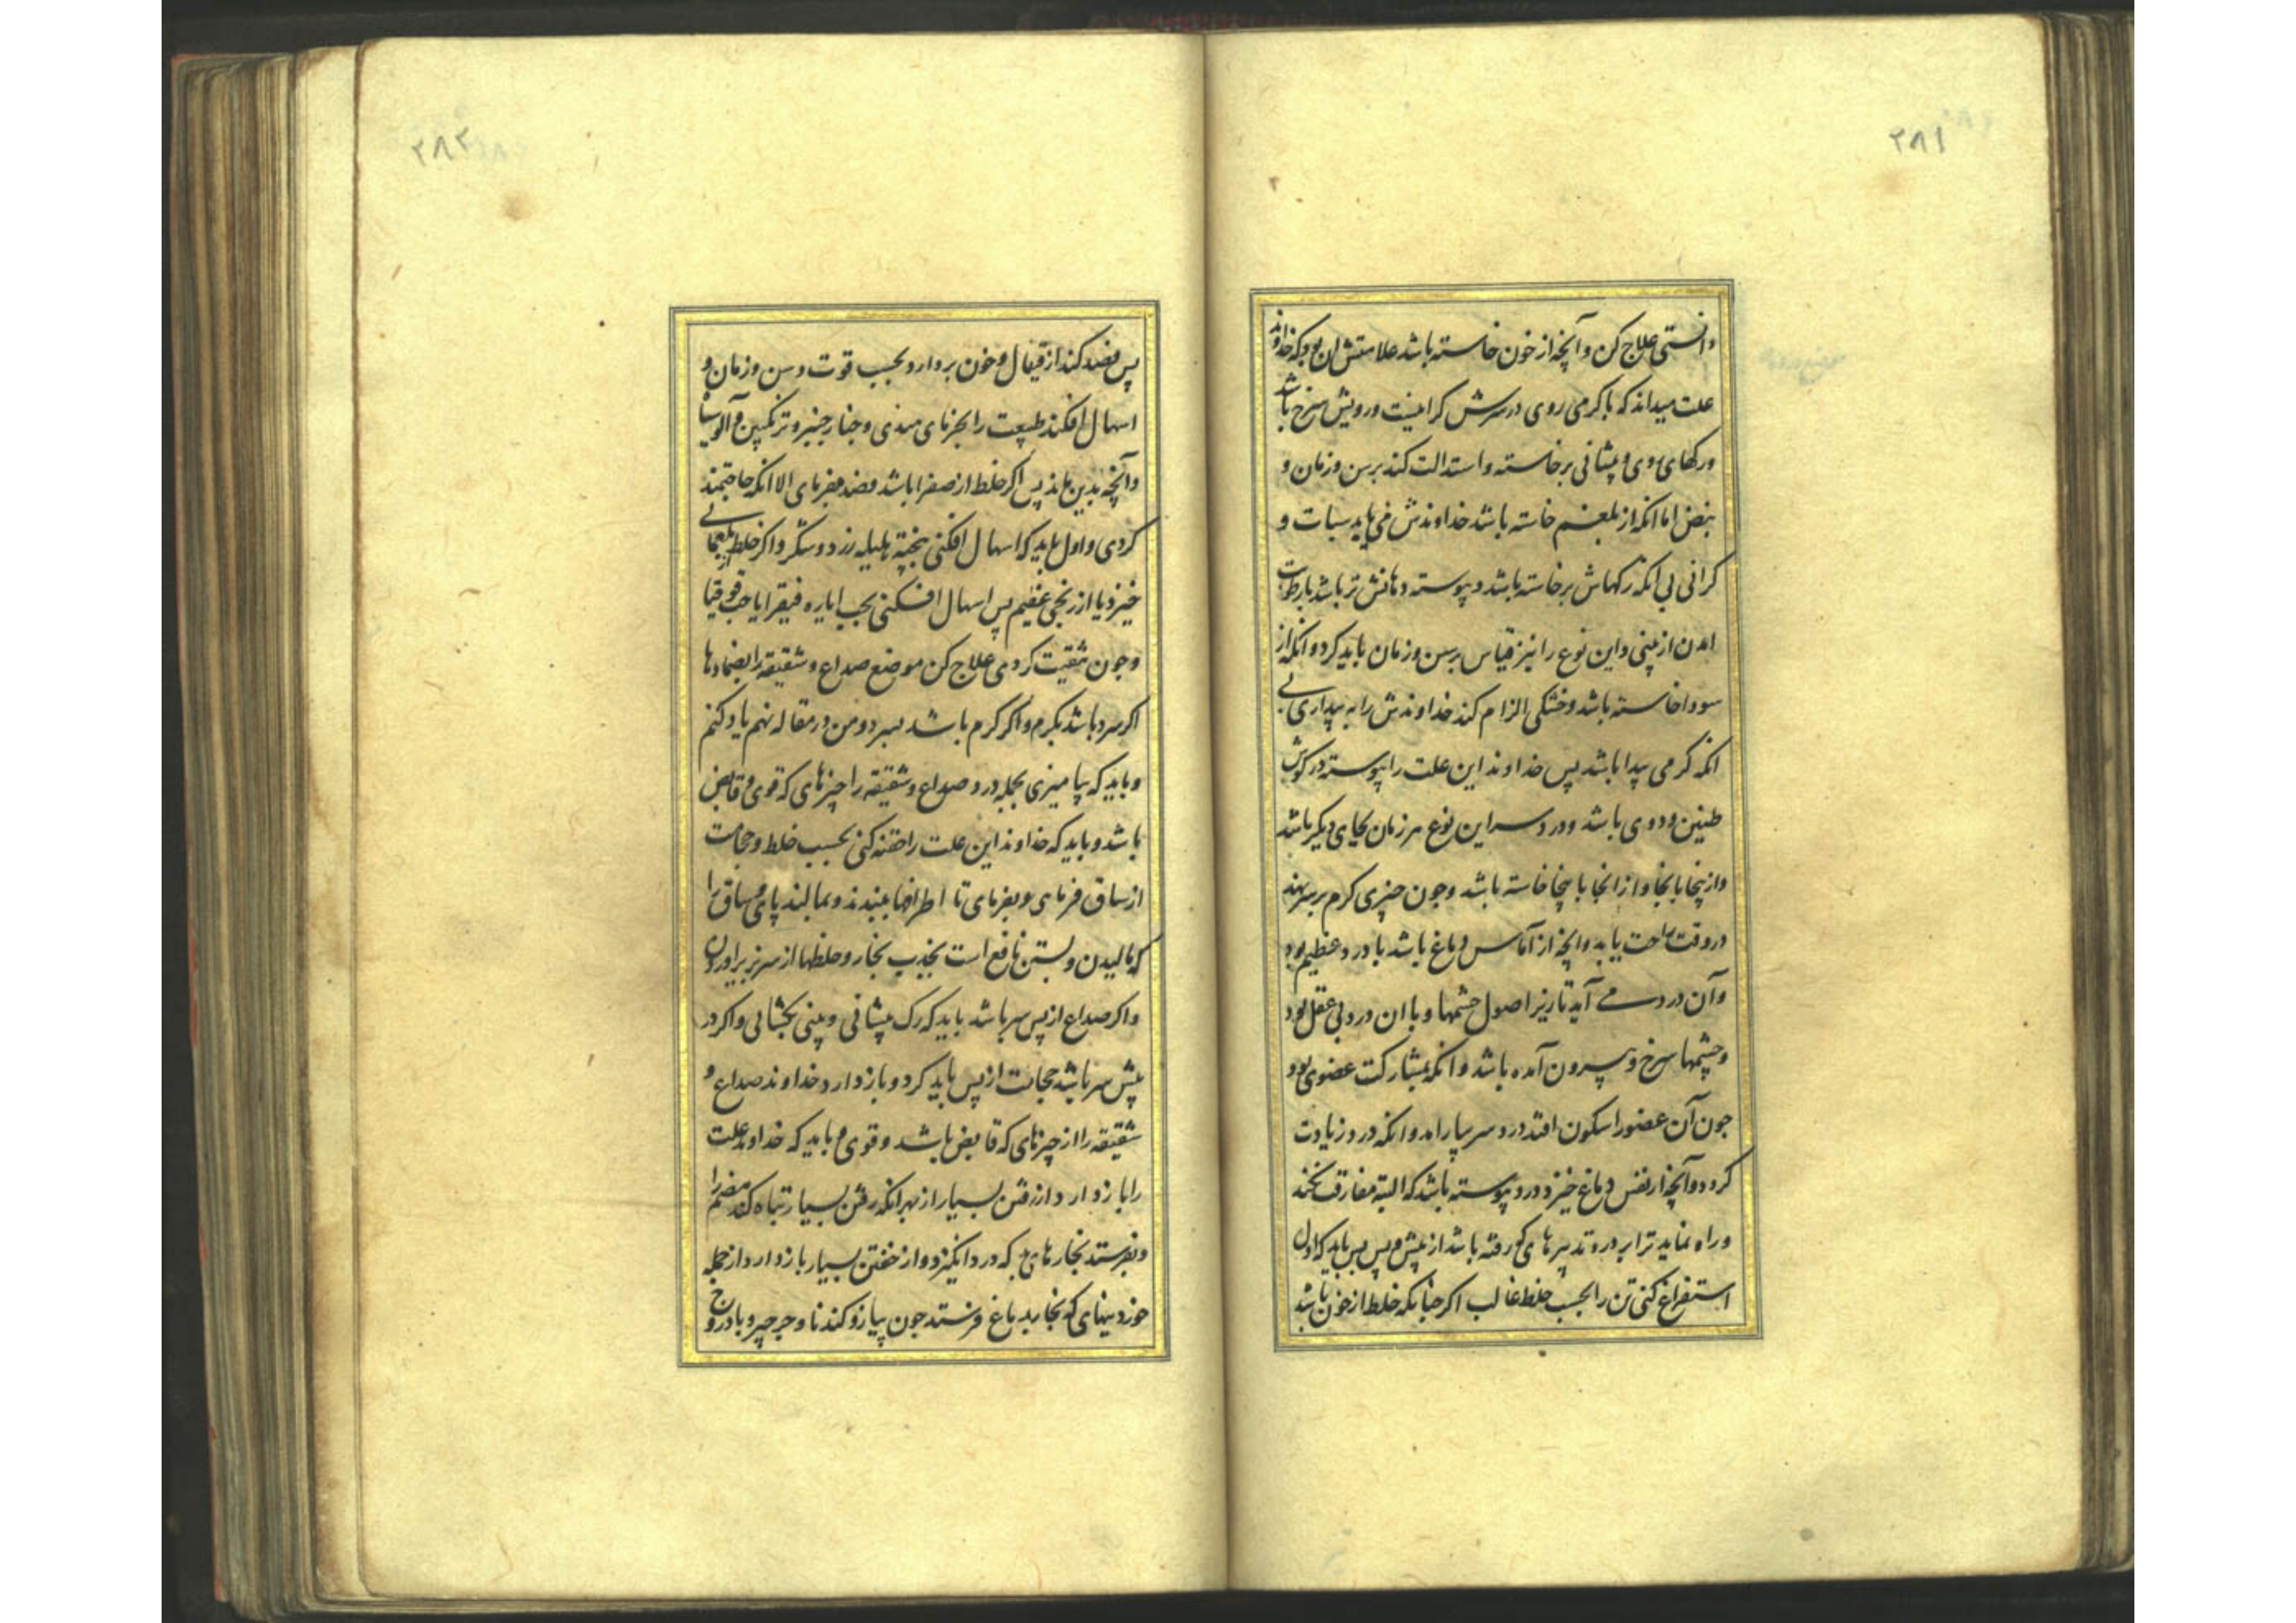 ۲۸۱
دانستی علاج کن وآنچه از خون خاسته باشد علامتش ان بود که خداوند
علت میداند که با کرمی روی در سرش کرانیست ورویش سرخ باشد
ورکهای روی و پیشانی برخاسته و استدالت کند برسن وزمان و
نبض اما انکه از بلغم خاسته باشد خداوندش می یابد سبات و
کرانی بی انکه رکهاش برخاسته باشد و پیوسته دهانش تر باشد با رطوبت
امدن از بینی واین نوع را نیز قیاس برسن وزمان باید کرد و انکه از
سودا خاسته باشد وخشکی الزام کند خداوندش را به بیداری بی
انکه کرمی پیدا باشد پس خداوند این علت را پیوسته در کوش
طنین ودوی باشد ودرد سر این نوع هر زمان بجای دیکر باشد
وازینجا بانجا وازانجا باینجا خاسته باشد وجون چیزی کرم برسر نهند
دروقت راحت یابد وانچه از آماس دماغ باشد با درد عظیم بود
وآن درد می آید تا زیر اصول چشمها و با ان درد بی عقل بود
وچشمها سرخ و بیرون آمده باشد وانکه بمشارکت عضوی بود
جون آن عضورا سکون افتد درد سر بیارامد وانکه درد زیادت
کردد وآنچه از نفس دماغ خیزد درد پیوسته باشد که البته مفارقت نکند
وراه نماید ترا بر درد تدبیرهای که رفته باشد از پیش و پس پس باید که اول
استفراغ کنی تن را بحسب خلط غالب اکر چنانکه خلط از خون باشد
۲۸۲
پس فصد کند از قیفال و خون بردارد بحسب قوت و سن وزمان و
اسهال افکند طبیعت را بچیزهای مبذی وخیار چنبر و ترنکبین و آلو سیاه
وآنچه بدین ماند پس اکر خلط از صفرا باشد فصد مفرمای الا انکه حاجتمند
کردی واول باید که اسهال افکنی بپخته هلیله زرد و سنکر واکر خلط از بلغمانی
خیزد یا از رنجی عظیم پس اسهال افکنی بحب ایاره فیقرا یا حب قوقیا
وجون تنقیت کردی علاج کن موضع صداع و شقیقه را بضمادها
اکر سرد باشد بکرم واکر کرم باشد بسرد ومن در مقاله نهم یاد کنم
وباید که بیامیزی بجمله درد صداع و شقیقه را چیزهای که قوی و قابض
باشد وباید که خداوند این علت را حقنه کنی بحسب خلط و حجامت
از ساق فرمای و بفرمای تا اطرافها ببندند وبمالند پای و ساق را
که مالیدن وبستن نافع است بجذب بخار وخلطها از سر بزیر اوردن
واکر صداع از پس سر باشد باید که رک پیشانی و بینی بکشائی واکر در
پیش سر باشد حجامت از پس باید کرد وباز دارد خداوند صداع و
شقیقه را از چیزهای که قابض باشد و قوی و باید که خداوند علت
را باز دارد از رفتن بسیار از بهر انکه رفتن بسیار تباه کند هضم را
وبفرستد بخارهای که درد انکیزد واز خفتن بسیار باز دارد از جمله
خوردنیهای که بخار بدماغ فرستد جون پیاز و کندنا و جرجیر و بادروج